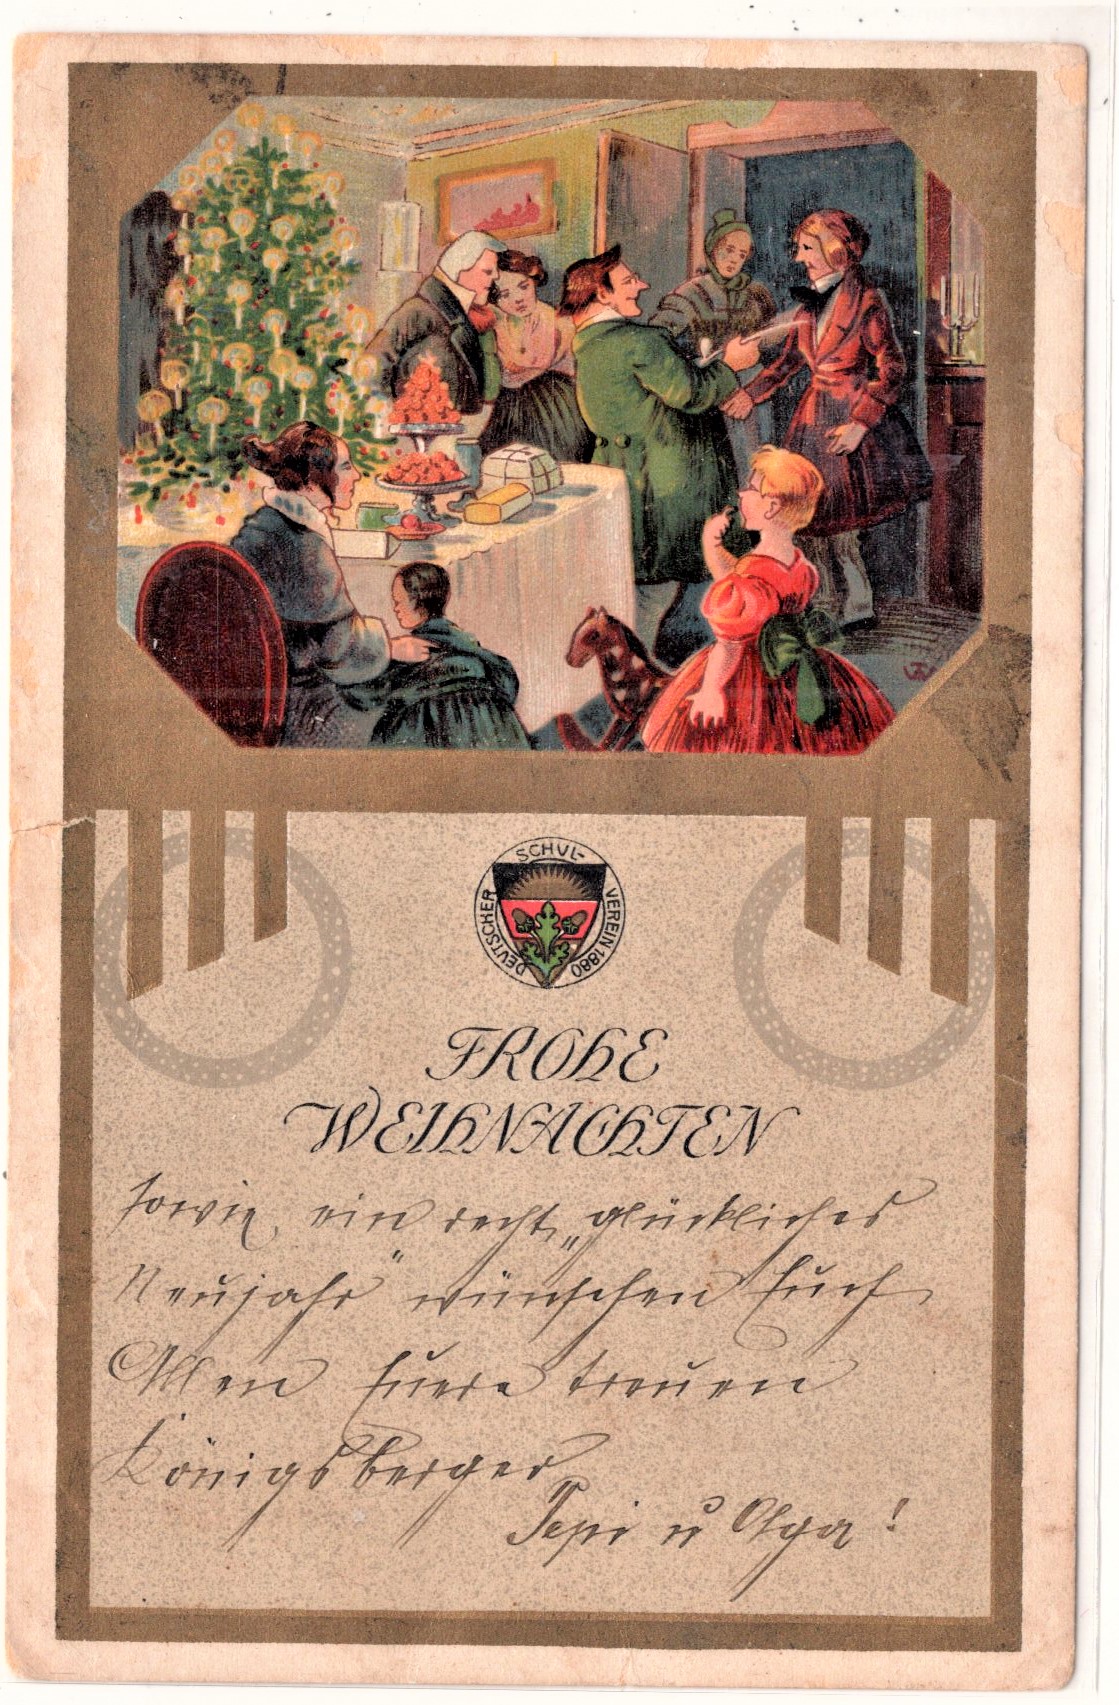 DEUTSCHER SCHUL-VEREIN 1880
FROHE
WEIHNACHTEN
sowie ein recht „glückliches
Neujahr“ wünschen Euch
Allen Euere treuen
Königsberger
Pepi u Olga!